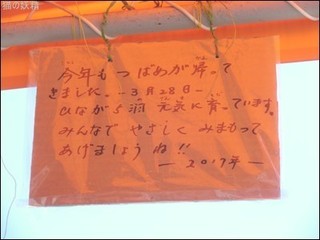 猫の妖精
今年もつばめが帰って
きました。-3月28日-
ひなが5羽 元気に育っています。
みんなで やさしく みまもって
あげましょうね!!
-2017年-